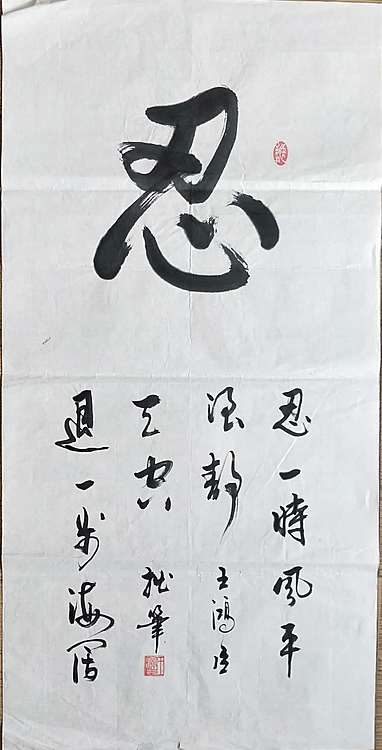 忍
忍一時風平
浪靜
退一步海闊
天空
王鴻
拙筆